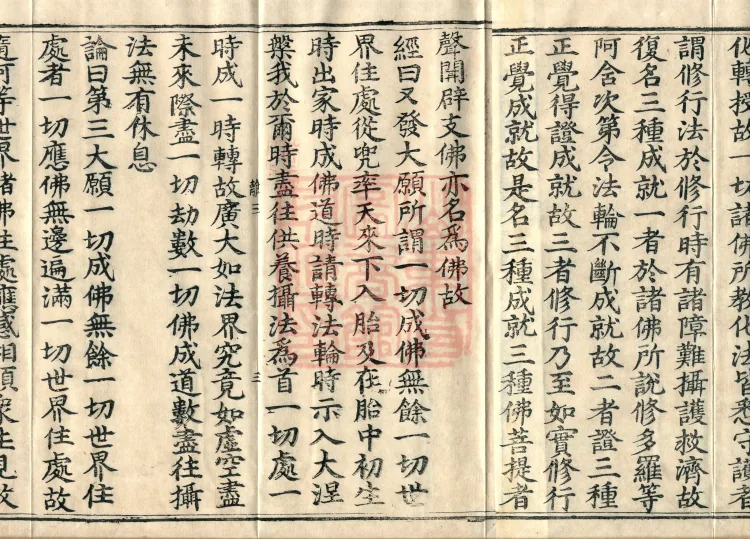 化轉授故一切諸佛所教化法皆悉守護者
謂修行法於修行時有諸障難攝護救濟故
復名三種成就一者於諸佛所說修多羅等
阿含次第令法輪不斷成就故二者證三種
正覺得證成就故三者修行乃至如實修行
正覺成就故是名三種成就三種佛菩提者
聲聞辟支佛亦名為佛故
經曰又發大願所謂一切成佛無餘一切世
界住處從兜率天來下入胎及在胎中初生
時出家時成佛道時請轉法輪時示入大涅
槃我於爾時盡往供養攝法為首一切處一
時成一時轉故廣大如法界究竟如虛空盡
未來際盡一切劫數一切佛成道數盡往攝
法無有休息
論曰第三大願一切成佛無餘一切世界住
處者一切應佛無邊遍滿一切世界住處故
隨何等世界諸佛住處應感相願眾生見故